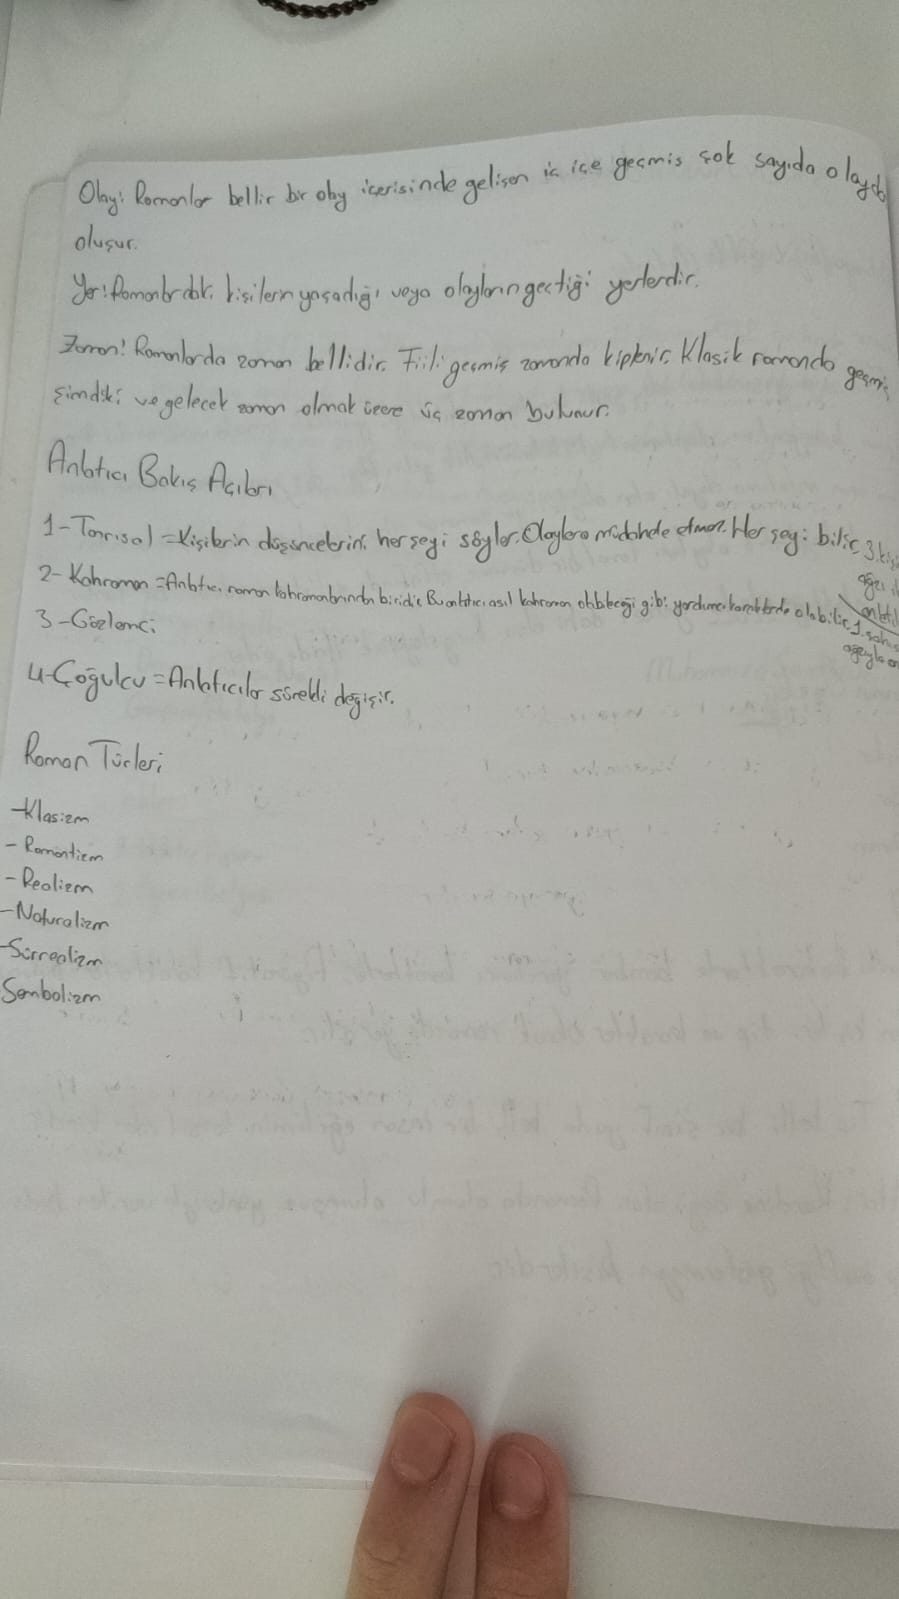 Olay: Romanlar bellir bir olay icerisinde gelişen iç içe geçmis çok sayıda olayda
oluşur.
Yer: Romanlardaki kişilerin yaşadığı veya olayların geçtiği yerlerdir.
Zaman: Romanlarda zaman bellidir. Fiili geçmiş zamanda kiplenir. Klasik romanda geçmiş
şimdiki ve gelecek zaman olmak üzere üç zaman bulunur.
Anlatıcı Bakış Açıları
1- Tanrısal = Kişilerin düşüncelerini, her şeyi söyler. Olaylara müdahale etmez. Her şeyi bilir, 3. kişi
ağzı il
anlatıl
2- Kahraman = Anlatıcı roman kahramanlarından biridir. Bu anlatıcı asıl kahraman olabileceği gibi yardımcı karakterde olabilir. 1. şahıs
ağzıyla an
3- Gözlemci
4- Çoğulcu = Anlatıcılar sürekli değişir.
Roman Türleri
- Klasizm
- Romantizm
- Realizm
- Naturalizm
- Sürrealizm
Sembolizm